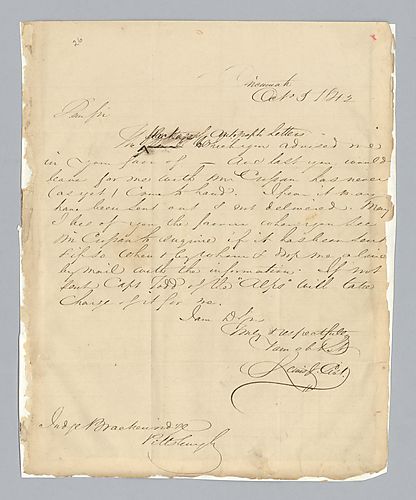 26
Savannah
Oct 3 1842
Dear Sir
The package of Autograph Letters
which you advised me
in your favor of — Augt last you would
leave for me with Mr has never
(as yet) come to hand. I fear it may
have been sent out & not delivered. May
I beg of you the favour when you see
Mr to enquire if it has been sent
& if so when & by whom & drop me a line
by mail with the information. If not
sent, Capt of the "Alps" will take
charge of it for me.
I am D Sir
Very respectfully
Your obt St
Judge Brackenridge
Pittsburgh